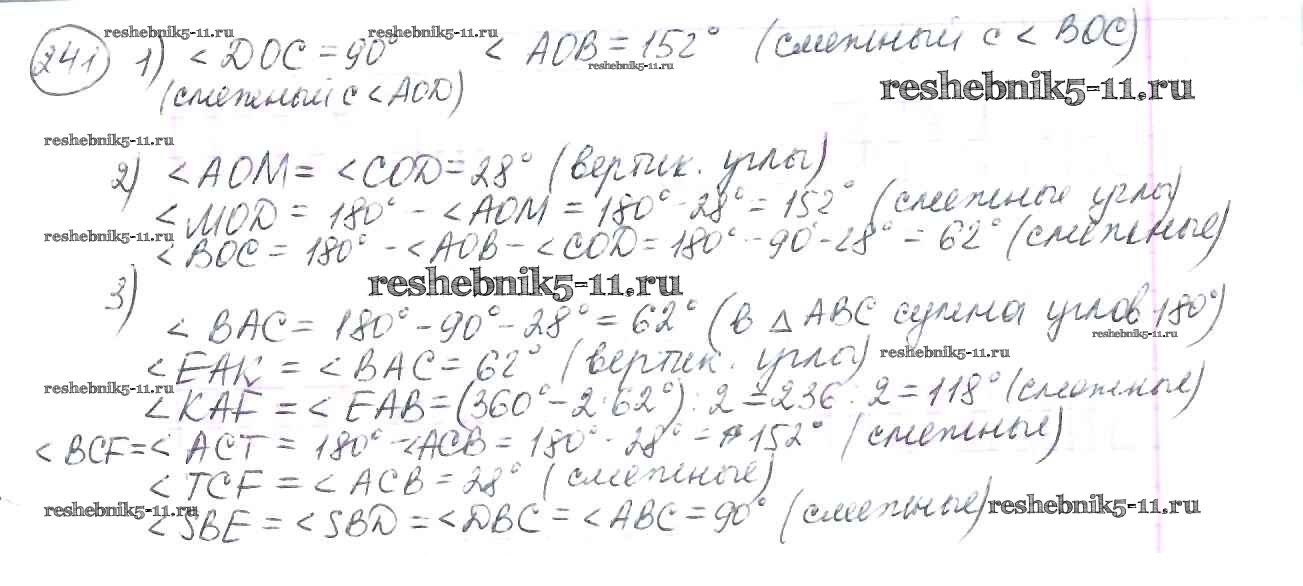 reshebnik5-11.ru reshebnik5-11.ru
241 1) < DOC = 90° < AOB = 152° (смежный с < BOC)
reshebnik5-11.ru
(смежный с < AOD) reshebnik5-11.ru
reshebnik5-11.ru
2) < AOM = < COD = 28° (вертик. углы)
< MOD = 180° - < AOM = 180° - 28° = 152° (смежные углы)
reshebnik5-11.ru
< BOC = 180° - < AOB - < COD = 180° - 90 - 28° = 62° (смежные)
3) reshebnik5-11.ru
< BAC = 180° - 90° - 28° = 62° (в △ ABC сумма углов 180°)
reshebnik5-11.ru
< EAK = < BAC = 62° (вертик. углы) reshebnik5-11.ru
reshebnik5-11.ru
< KAF = < EAB = (360° - 2·62°) : 2 = 236 : 2 = 118° (смежные)
< BCF = < ACT = 180° - < ACB = 180° - 28° = 152° (смежные)
< TCF = < ACB = 28° (смежные)
reshebnik5-11.ru
< SBE = < SBD = < DBC = < ABC = 90° (смежные) reshebnik5-11.ru